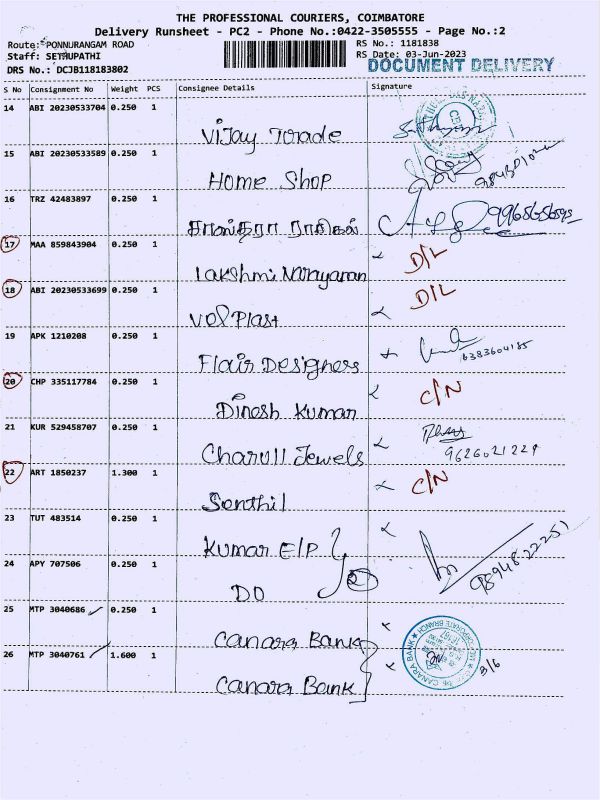 THE PROFESSIONAL COURIERS, COIMBATORE
Delivery Runsheet - PC2 - Phone No.:0422-3505555 - Page No.:2
Route: PONNURANGAM ROAD
RS No.: 1181838
Staff: SETHUPATHI
RS Date: 03-Jun-2023
DRS No.: DCJB118183802
DOCUMENT DELIVERY
S No Consignment No Weight PCS Consignee Details Signature
14 ABI 20230533704 0.250 1
Vijay Trade
15 ABI 20230533589 0.250 1
Home Shop
16 TRZ 42483897 0.250 1
17 MAA 859843904 0.250 1 D/L
Lakshmi Narayanan
18 ABI 20230533699 0.250 1 D/L
Vel Plast
19 APK 1210208 0.250 1
6383604185
Flair Designers
20 CHP 335117784 0.250 1 C/N
Dinesh Kumar
21 KUR 529458707 0.250 1
9626021229
Charull Jewels
22 ART 1850237 1.300 1 C/N
Senthil
23 TUT 483514 0.250 1
Kumar E/P
2
24 APY 707506 0.250 1
9894822251
DO
25 MTP 3040686 0.250 1
Canara Bank
26 MTP 3040761 1.600 1
CANARA BANK
3/6
Canara Bank